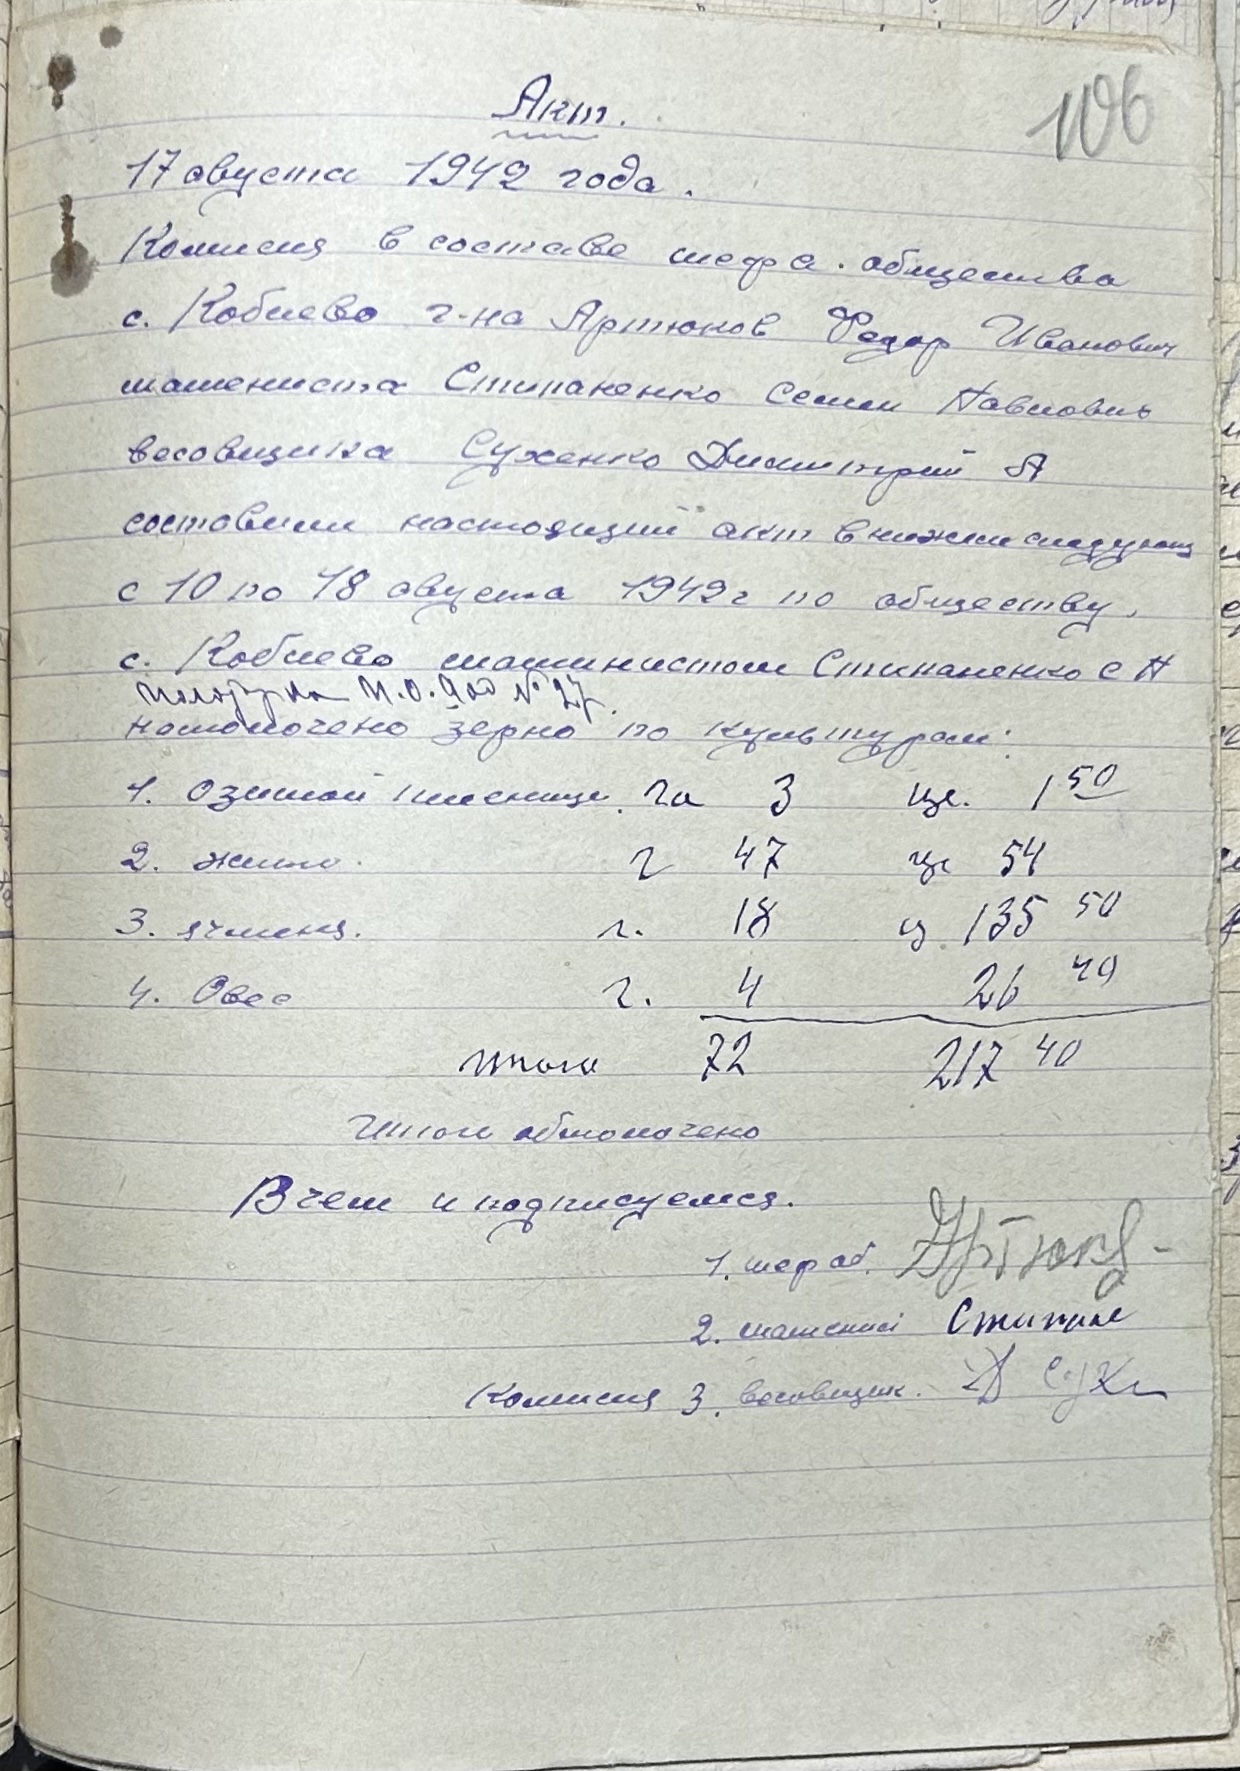 106
Акт.
17 августа 1942 года.
Комисия в составе шефа. общества
с. Кобиево г-на Артюков Федор Иванович
машениста Стипаненко Семен Павлович
весовщика Сухенко Дмитрий А
составили настоящий акт в нижеследующ
с 10 по 18 августа 1942 г по обществу.
с. Кобиево машинистом Стипаненко С П
М.О. №27.
намолочено зерно по культурам:
1. Озимой пшеницы. га 3 цн. 1 50
2. жито. г 47 цн 54
3. ячменя. г. 18 ц. 135 50
4. Овес г. 4 26 40
Итого 72 217 40
Итого обмолочено
В чем и подписуемся.
1. шеф об. Артюков
2. машенист Стипан
Комисия 3. весовщик. Д Сухе